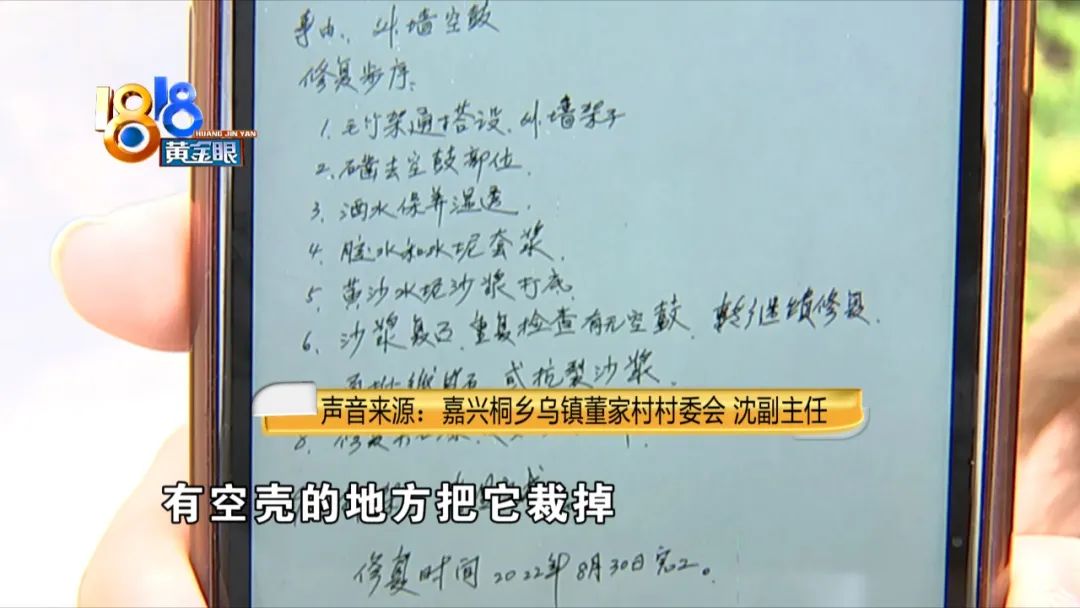 事由:外墙空鼓
修复步序:
1818
HUANG JIN YAN
黄金眼
1. 毛竹架通搭设、外墙架子
2. 凿去空鼓部位.
3. 洒水保养湿透.
4. 胶水和水坭套浆.
5. 黄沙水坭沙浆打底.
6. 沙浆 重复检查有无空鼓. 继续修复.
或抗裂沙浆.
声音来源:嘉兴桐乡乌镇董家村村委会 沈副主任
8. 修复
有空壳的地方把它裁掉
修复时间2022年8月30日完工。